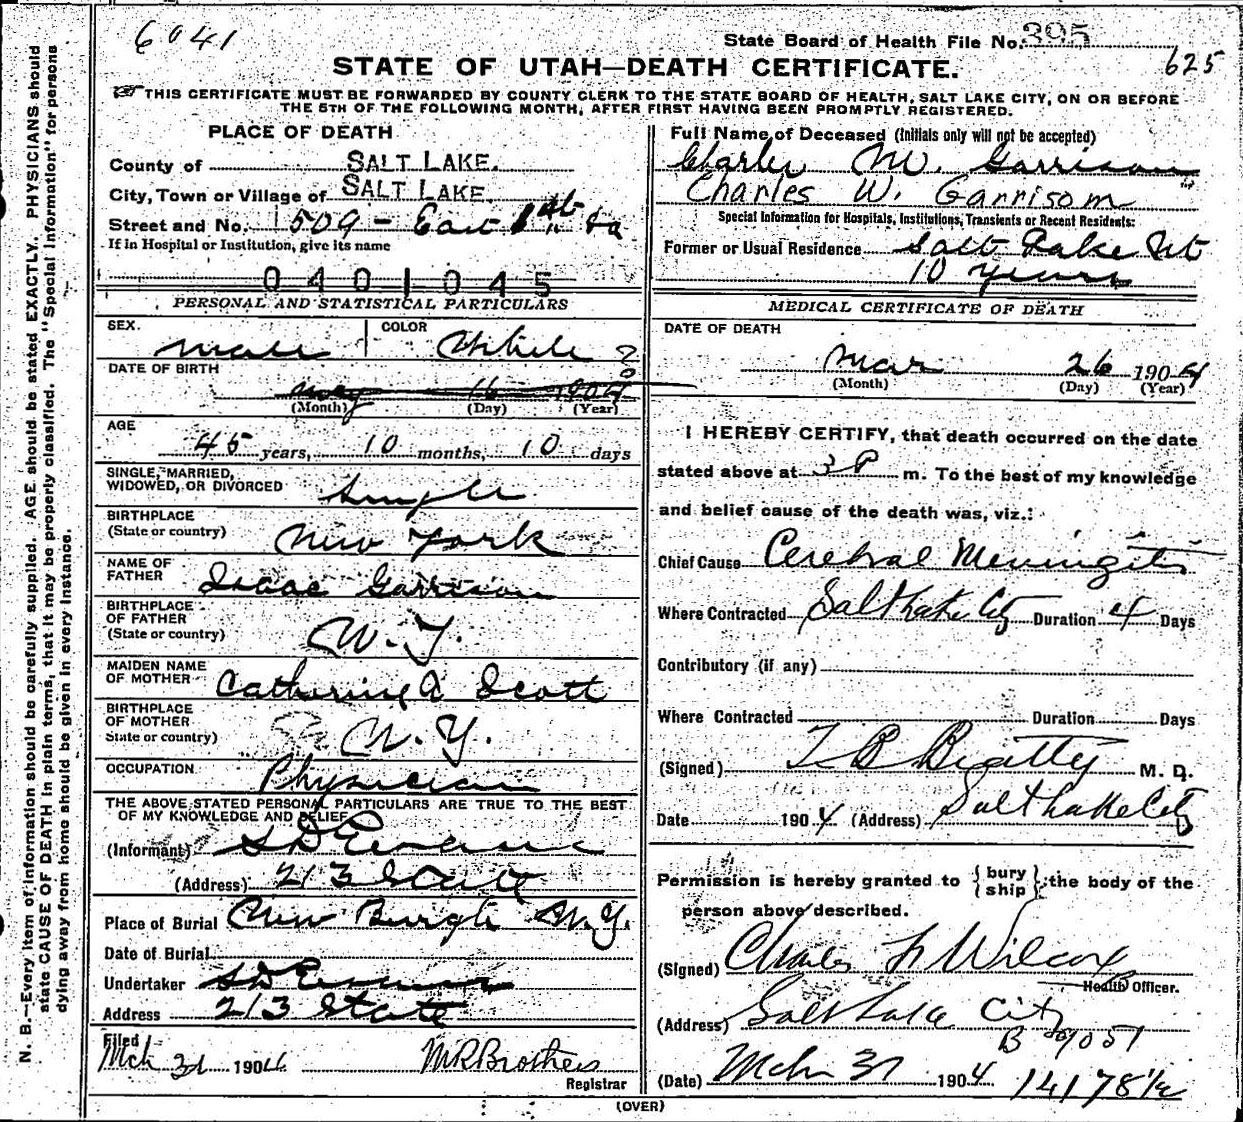 6041
State Board of Health File No. 395
625
STATE OF UTAH—DEATH CERTIFICATE.
THIS CERTIFICATE MUST BE FORWARDED BY COUNTY CLERK TO THE STATE BOARD OF HEALTH, SALT LAKE CITY, ON OR BEFORE
THE 5TH OF THE FOLLOWING MONTH, AFTER FIRST HAVING BEEN PROMPTLY REGISTERED.
N. B.—Every item of information should be carefully supplied. AGE should be stated EXACTLY. PHYSICIANS should
state CAUSE OF DEATH in plain terms, that it may be properly classified. The "Special Information" for persons
dying away from home should be given in every instance.
PLACE OF DEATH
County of SALT LAKE.
City, Town or Village of SALT LAKE
Street and No. 509 - East
If in Hospital or Institution, give its name
0401045
PERSONAL AND STATISTICAL PARTICULARS
SEX. male COLOR White
DATE OF BIRTH
may 16 190
(Month) (Day) (Year)
AGE
45 years, 10 months, 10 days
SINGLE, MARRIED,
WIDOWED, OR DIVORCED Single
BIRTHPLACE
(State or country) New York
NAME OF
FATHER Isaac Garrison
BIRTHPLACE
OF FATHER
(State or country) N. Y.
MAIDEN NAME
OF MOTHER Catharine A Scott
BIRTHPLACE
OF MOTHER
State or country) N. Y.
OCCUPATION Physician
THE ABOVE STATED PERSONAL PARTICULARS ARE TRUE TO THE BEST
OF MY KNOWLEDGE AND BELIEF
(Informant) S D Evans
(Address) 213 State
Place of Burial New Burgh N.Y.
Date of Burial
Undertaker S D Evans
Address 213 State
Filed
Mch 31 1904 M R Brothers
Registrar
Full Name of Deceased (Initials only will not be accepted)
Charles W. Garrison
Charles W. Garrisom
Special Information for Hospitals, Institutions, Transients or Recent Residents:
Former or Usual Residence Salt Lake Ut
10 years
MEDICAL CERTIFICATE OF DEATH
DATE OF DEATH
Mar 26 1904
(Month) (Day) (Year)
I HEREBY CERTIFY, that death occurred on the date
stated above at 3 P m. To the best of my knowledge
and belief cause of the death was, viz.:
Chief Cause Cerebral Meningitis
Where Contracted Salt Lake City Duration 4 Days
Contributory (if any)
Where Contracted Duration Days
(Signed) T B Beatty M. D.
Date 1904 (Address) Salt Lake City
Permission is hereby granted to { bury ship } the body of the
person above described.
(Signed) Charles F Wilcox
Health Officer.
(Address) Salt Lake City
B 9051
(Date) Mch 31 1904 14178 1/2
(OVER)